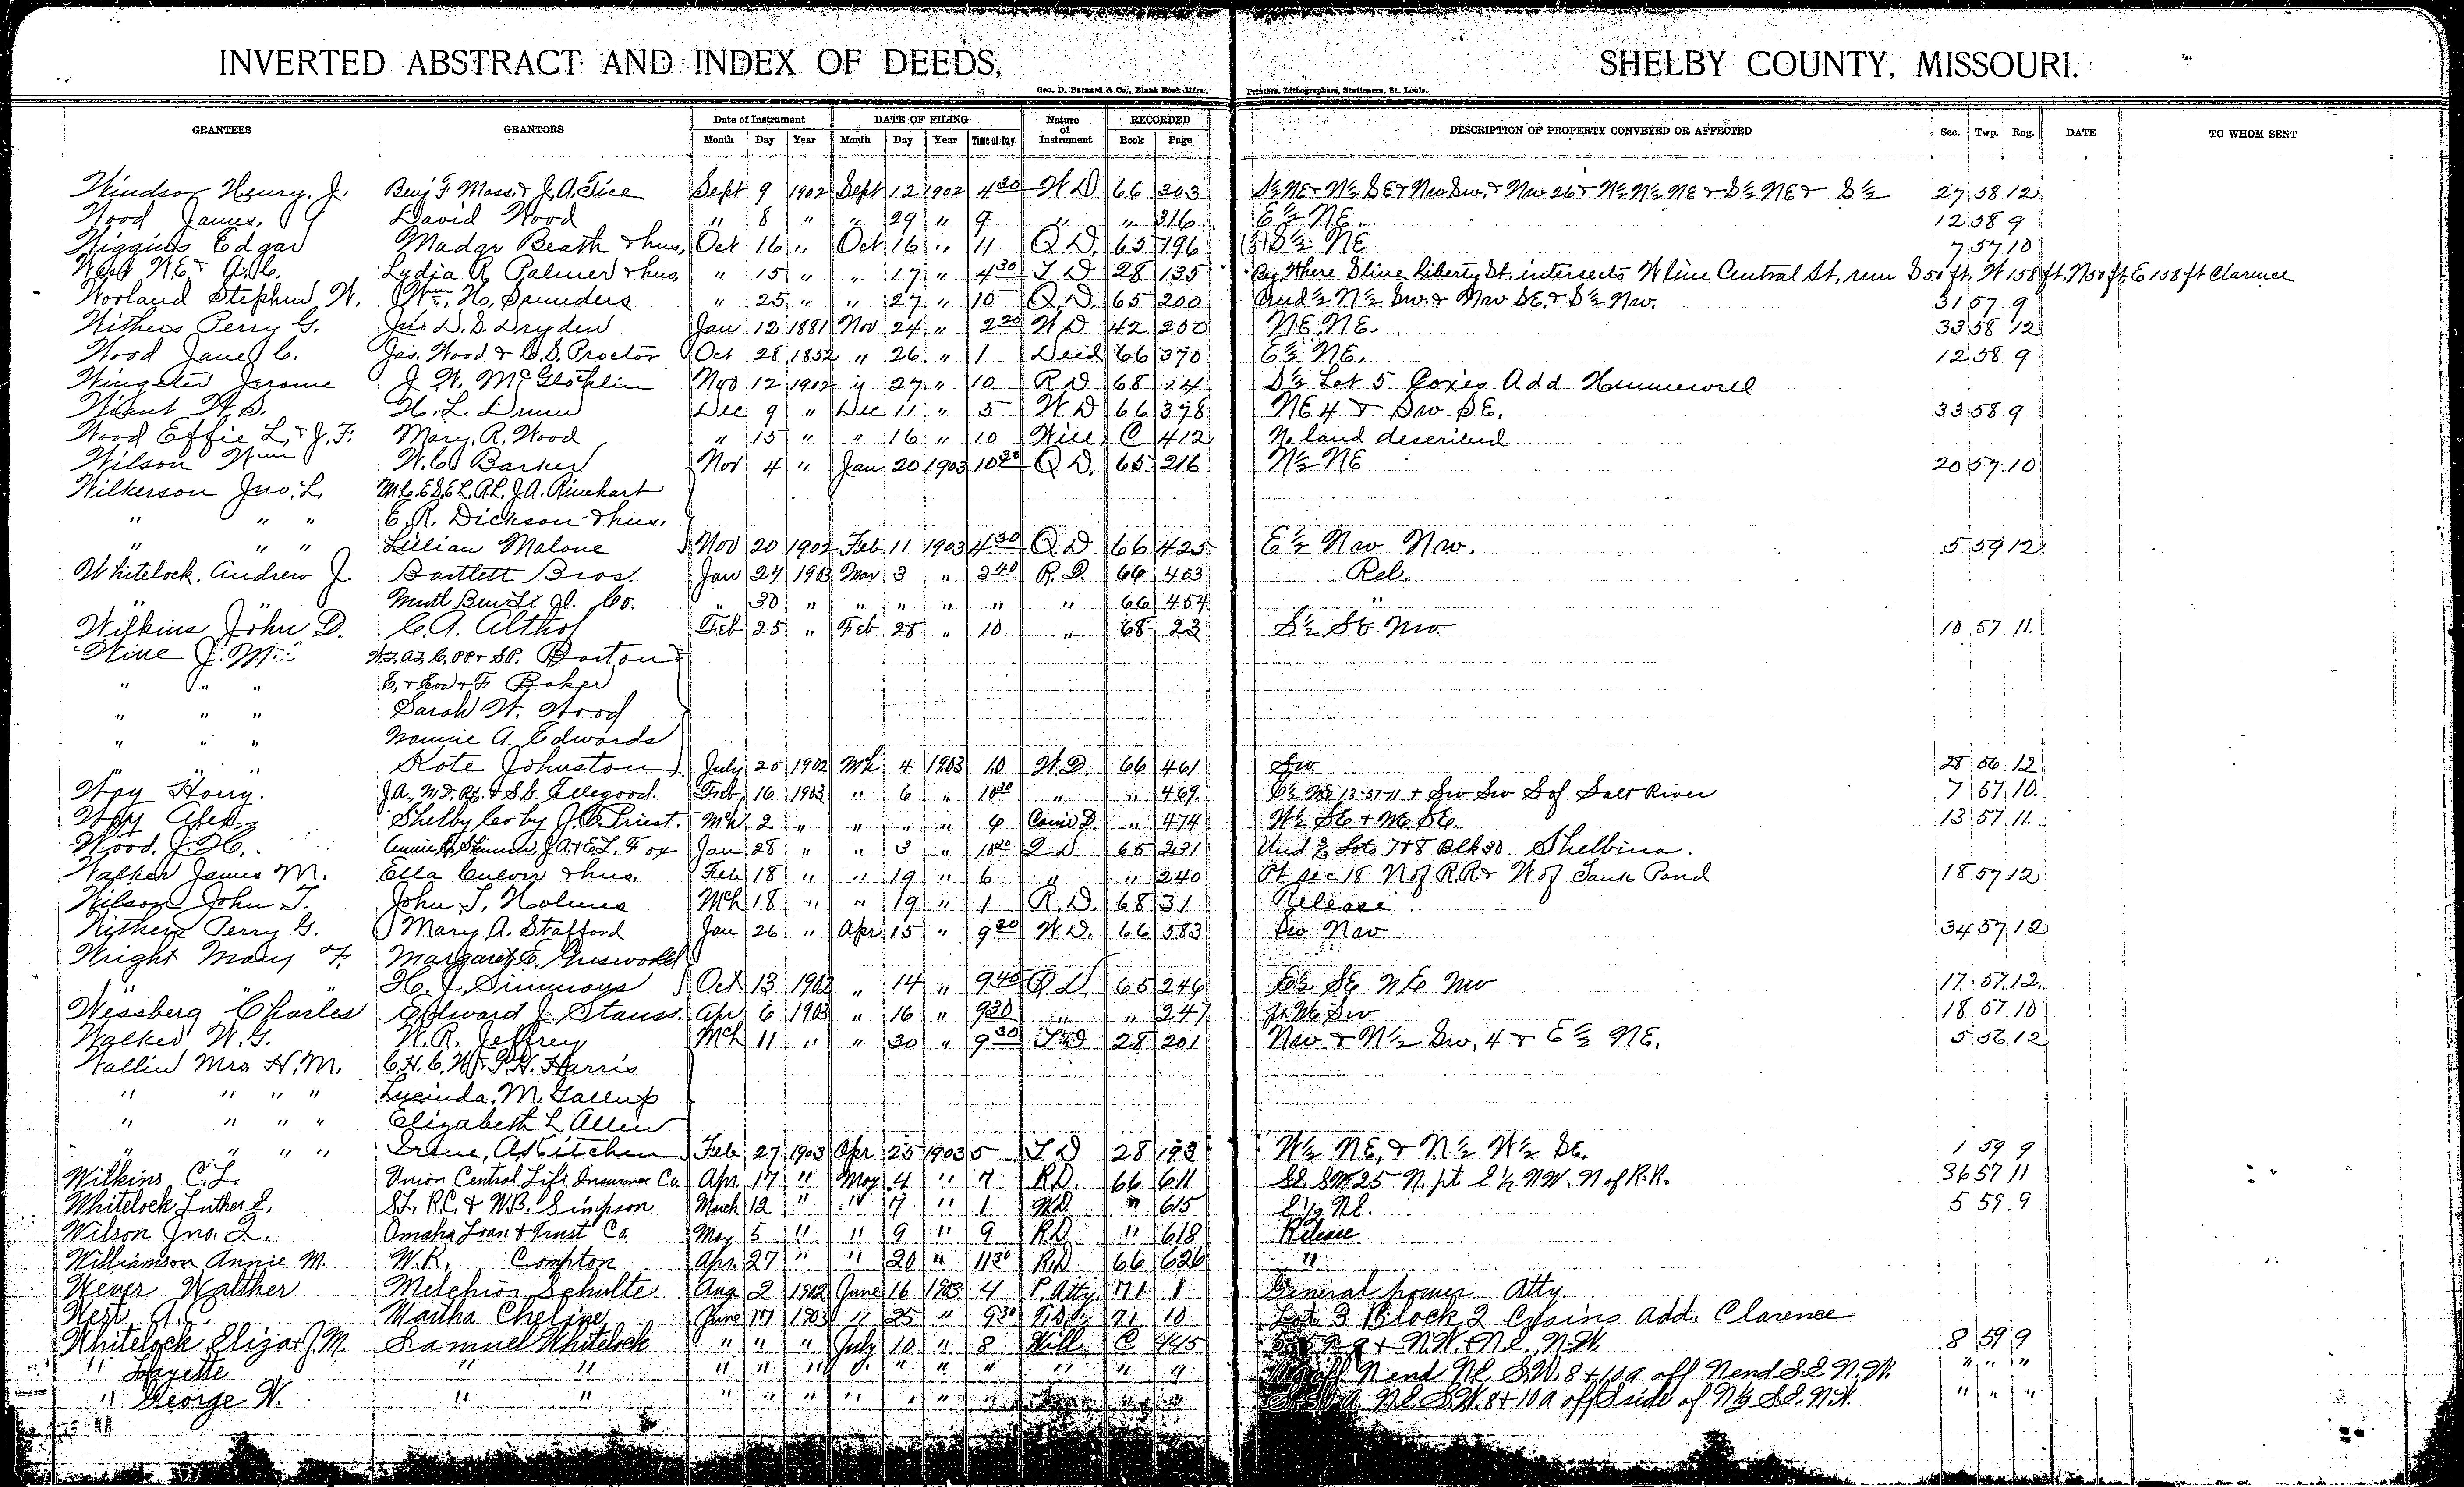 INVERTED ABSTRACT AND INDEX OF DEEDS, SHELBY COUNTY, MISSOURI.
Geo. D. Barnard & Co., Blank Book Mfrs., Printers, Lithographers, Stationers, St. Louis.
GRANTEES GRANTORS Date of Instrument DATE OF FILING Nature of Instrument RECORDED DESCRIPTION OF PROPERTY CONVEYED OR AFFECTED Sec. Twp. Rng. DATE TO WHOM SENT
Month Day Year Month Day Year Time of Day Book Page
Windsor Henry J. Benj F. Moss & J.A. Tice Sept 9 1902 Sept 12 1902 4 30 W D 66 303 S½ NE & N½ SE & Nw Sw. & Nw 26 & N½ N½ NE & S½ NE & S½ 27 58 12
Wood James. David Wood " 8 " " 29 " 9 " " 316 E½ NE. 12 58 9
Wiggins Edgar Madge Beath & hus, Oct 16 " Oct 16 " 11 Q D. 65 196 S½ NE 7 57 10
West W.E. & A.C. Lydia R Palmer & hus, " 15 " " 17 " 4 30 T D 28 135 Beg Where S line Liberty St. intersects W line Central St, run S 50 ft. W 158 ft. N 50 ft. E 158 ft Clarence
Worland Stephen W. Wm. H. Saunders " 25 " " 27 " 10 Q D. 65 200 Und ½ N½ Sw. & Nw SE. & S½ Nw. 31 57 9
Withers Perry G. Jno D. S. Dryden Jan 12 1881 Nov 24 " 2 20 W D 42 250 NE NE. 33 58 12
Wood Jane C. Jas. Wood & C.S. Proctor Oct 28 1852 " 26 " 1 Deed 66 370 E½ NE. 12 58 9
Wingeter Jerome J. W. McGlothlin Nov 12 1902 " 27 " 10 R D 68 14 S½ Lot 5 Coxes Add Hunnewell
Wiant H.S. H. L. Dunn Dec 9 " Dec 11 " 5 W D 66 378 NE 4 & Sw SE. 33 58 9
Wood Effie L, & J.F. Mary, R, Wood " 15 " " 16 " 10 Will C 412 No land described
Wilson Wm W.C. Barker Nov 4 " Jan 20 1903 10 20 Q D. 65 216 N½ NE 20 57 10
Wilkerson Jno. L. M.C. E.S. E.L. P.L. J.A. Rinehart
" " " E. R. Dickson & hus.
" " " Lillian Malone Nov 20 1902 Feb 11 1903 4 30 Q D 66 425 E½ Nw Nw. 5 59 12
Whitelock, Andrew J. Bartlett Bros. Jan 24 1903 Mar 3 " 3 40 R. D. 66 453 Rel.
" " Mutl Ben Li Co. " 30 " " " " " " 66 454 "
Wilkins John D. C. A. Althof Feb 25 " Feb 28 " 10 " 68 23 S½ SE. Nw 10 57 11.
Wine J. M. Barton
" " " Baker
" " " Sarah W. Wood
" " " Nannie A. Edwards
" " " Kate Johnston July 25 1902 Mh 4 1903 10 W.D. 66 461 Sw 28 56 12
Way Harry. Ellegood. Feb 16 1903 " 6 " 10 30 " " 469. E½ NE 13-57-11 & Sw Sw S of Salt River 7 57 10.
Way Alex Shelby Co by J. Priest. Mh 2 " " " " 6 " 474 W½ SE. & NE SE. 13 57 11.
Wood. J.H. Fox Jan 28 " " 3 " 10 20 Q D 65 231 Lots 7 & 8 Blk 30 Shelbina.
Walker James M. Ella Culver & hus. Feb 18 " " 19 " 6 " " 240 Pt sec 18 N of R.R & W of Tank Pond 18 57 12
Wilson John T. John T. Holmes Mch 18 " " 19 " 1 R. D. 68 31 Release
Withers Perry G. Mary A. Stafford Jan 26 " Apr 15 " 9 30 W D. 66 583 Sw Nw 34 57 12
Wright Mary F. Margaret E. Griswold
" " H. J. Simmons Oct 13 1902 " 14 " 9 40 Q D. 65 246 E½ SE NE Nw 17. 57. 12.
Wessberg Charles Edward J. Stauss. Apr 6 1903 " 16 " 9 30 " " 247 NE Sw 18 57 10
Walker W. G. W. R. Jeffrey Mch 11 " " 30 " 9 30 T D 28 201 Nw & N½ Sw, 4 & E½ NE. 5 56 12
Wallin Mrs. H. M. C.H. C.W. & P.H. Harris
" " " " Lucinda, M. Gallup
" " " " Elizabeth L Allen
" " " " Irene, A. Kitchen Feb 27 1903 Apr 25 1903 5 T D 28 193 W½ NE, & N½ W½ SE. 1 59 9
Wilkins C.L. Union Central Life Insurance Co. Apr. 17 " May 4 " 7 R.D. 66 611 SE. SW 25- N. pt E½ NW. N of R.R. 36 57 11
Whitelock Luther E. S.L. R.C. & W.B. Simpson March 12 " " 7 " 1 W.D. " 615 E½ NE. 5 59 9
Wilson Jno. L. Omaha Loan & Trust Co. May 5 " " 9 " 9 R.D. " 618 Release
Williamson Annie M. W.R. Compton Apr. 27 " " 20 " 11 30 R.D 66 626 "
Wever Walther Melchior Schulte Aug 2 1902 June 16 1903 4 P. Atty. 71 1 General power Atty
West A.C. Martha Cheline June 17 1903 " 25 " 9 30 71 10 Lot 3 Block 2 Chains Add. Clarence
Whitelock Eliza J.M. Samuel Whitelock " " " July 10 " 8 Will C 445 N.W. N.E. N.W. 8 59 9
" Layette " " " " " " " " " " " " off N end NE. S.W. 8 & 10 a off N end S.E N.W. " " "
" George W. " " " " " " " " " " " " N.E. S.W. 8 & 10 a off S side of N½ S.E. N.W. " " "